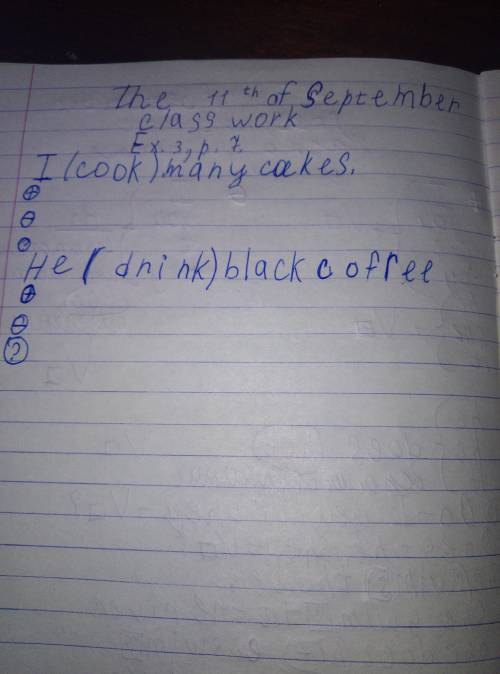 The 11th of September
class work
Ex. 3, p. 7.
I (cook) many cakes.
⊕
⊖
He ( drink) black coffee
⊕
⊖
?